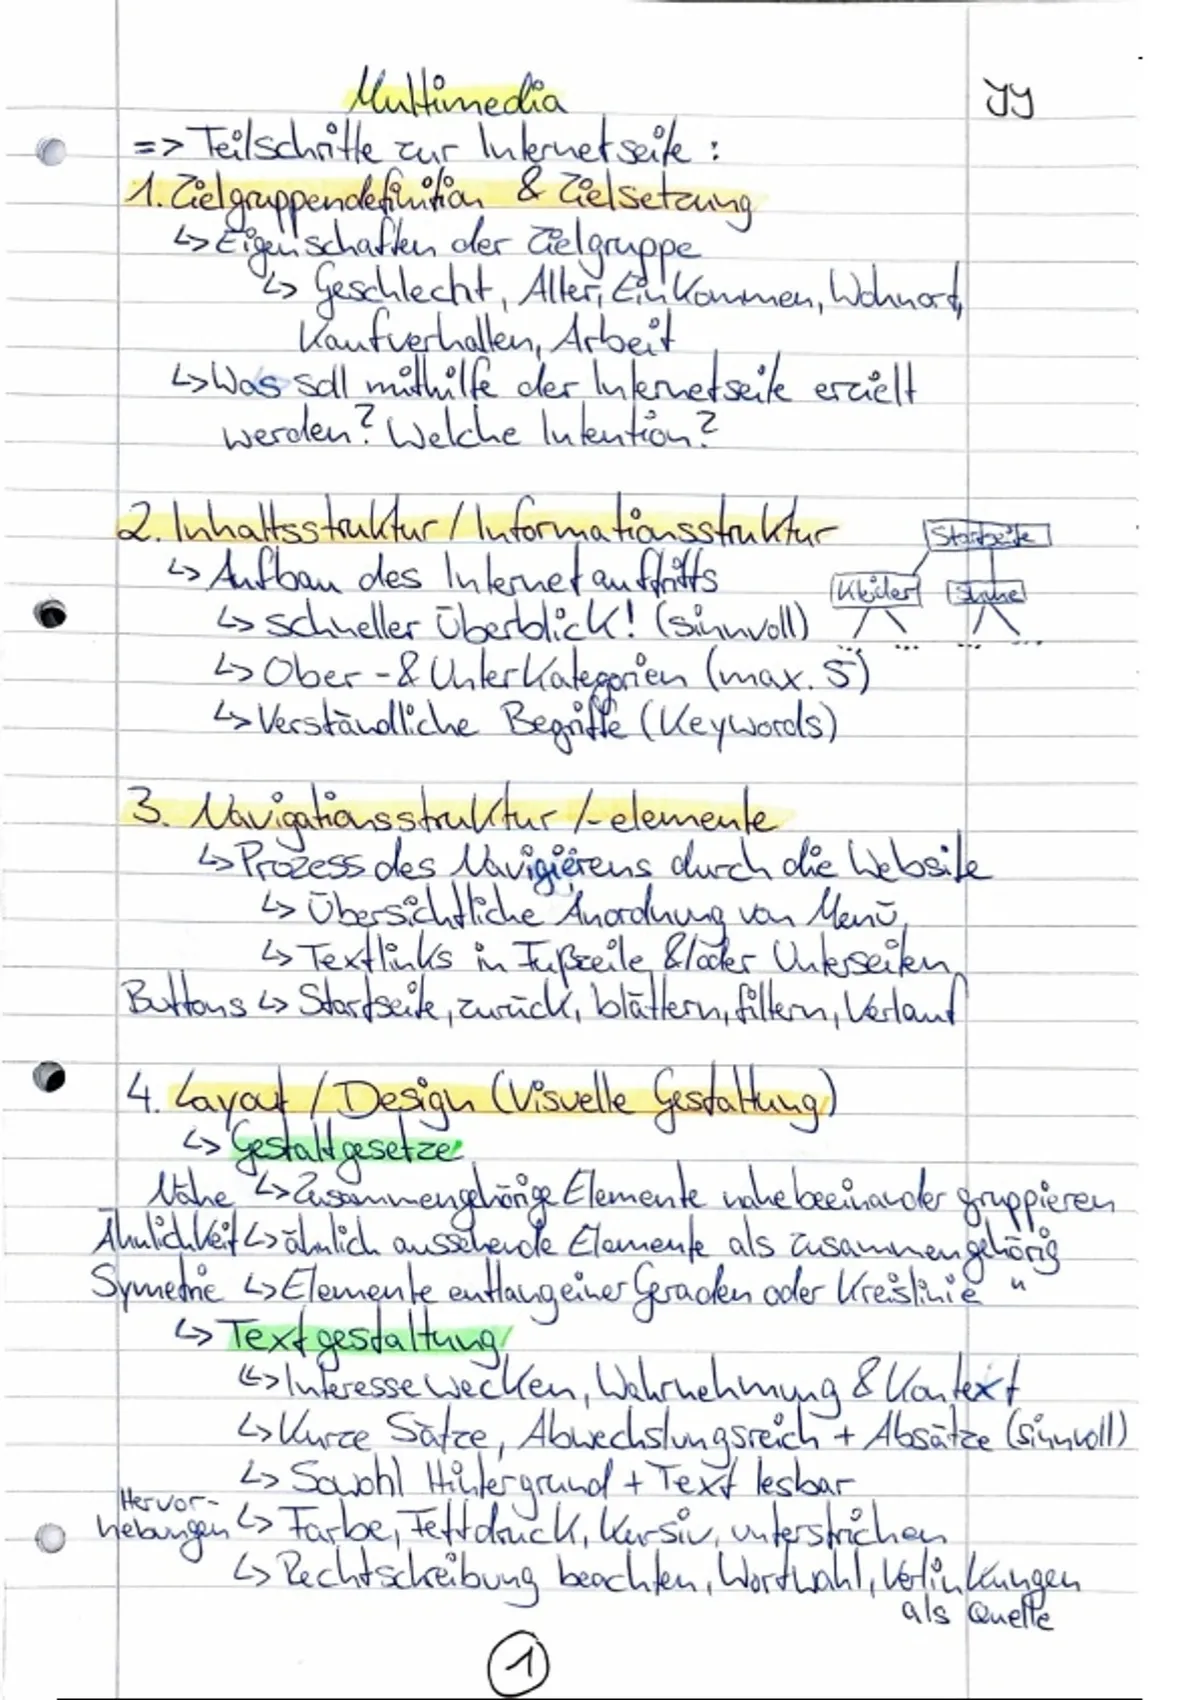 Multimedia
JJ
=> Teilschritte zur Internetseite :
1. Zielgruppendefinition & Zielsetzung
↳ Eigenschaften der Zielgruppe
↳ Geschlecht, Alter, Einkommen, Wohnort,
Kaufverhalten, Arbeit
↳ Was soll mithilfe der Internetseite erzielt
werden? Welche Intention?
2. Inhaltsstruktur / Informationsstruktur
Startseite
↳ Aufbau des Internetauftritts
Kleider
↳ schneller Überblick! (sinnvoll)
... ... ... ...
↳ Ober- & Unterkategorien (max. 5)
↳ Verständliche Begriffe (Keywords)
3. Navigationsstruktur /-elemente
↳ Prozess des Navigierens durch die Website
↳ Übersichtliche Anordnung von Menü,
↳ Textlinks in Fußzeile &/oder Unterseiten
Buttons ↳ Startseite, zurück, blättern, filtern, Verlauf
4. Layout / Design (Visuelle Gestaltung)
↳ Gestaltgesetze
Nähe ↳ Zusammengehörige Elemente nahe beeinander gruppieren
Ähnlichkeit ↳ ähnlich aussehende Elemente als zusammengehörig
Symetrie ↳ Elemente entlang einer Geraden oder Kreislinie "
↳ Textgestaltung
↳ Interesse wecken, Wahrnehmung & Kontext
↳ Kurze Sätze, Abwechslungsreich + Absätze (sinnvoll)
↳ Sowohl Hintergrund + Text lesbar
Hervor-
hebungen ↳ Farbe, Fettdruck, Kursiv, unterstrichen
↳ Rechtschreibung beachten, Wortwahl, Verlinkungen
als Quelle
1